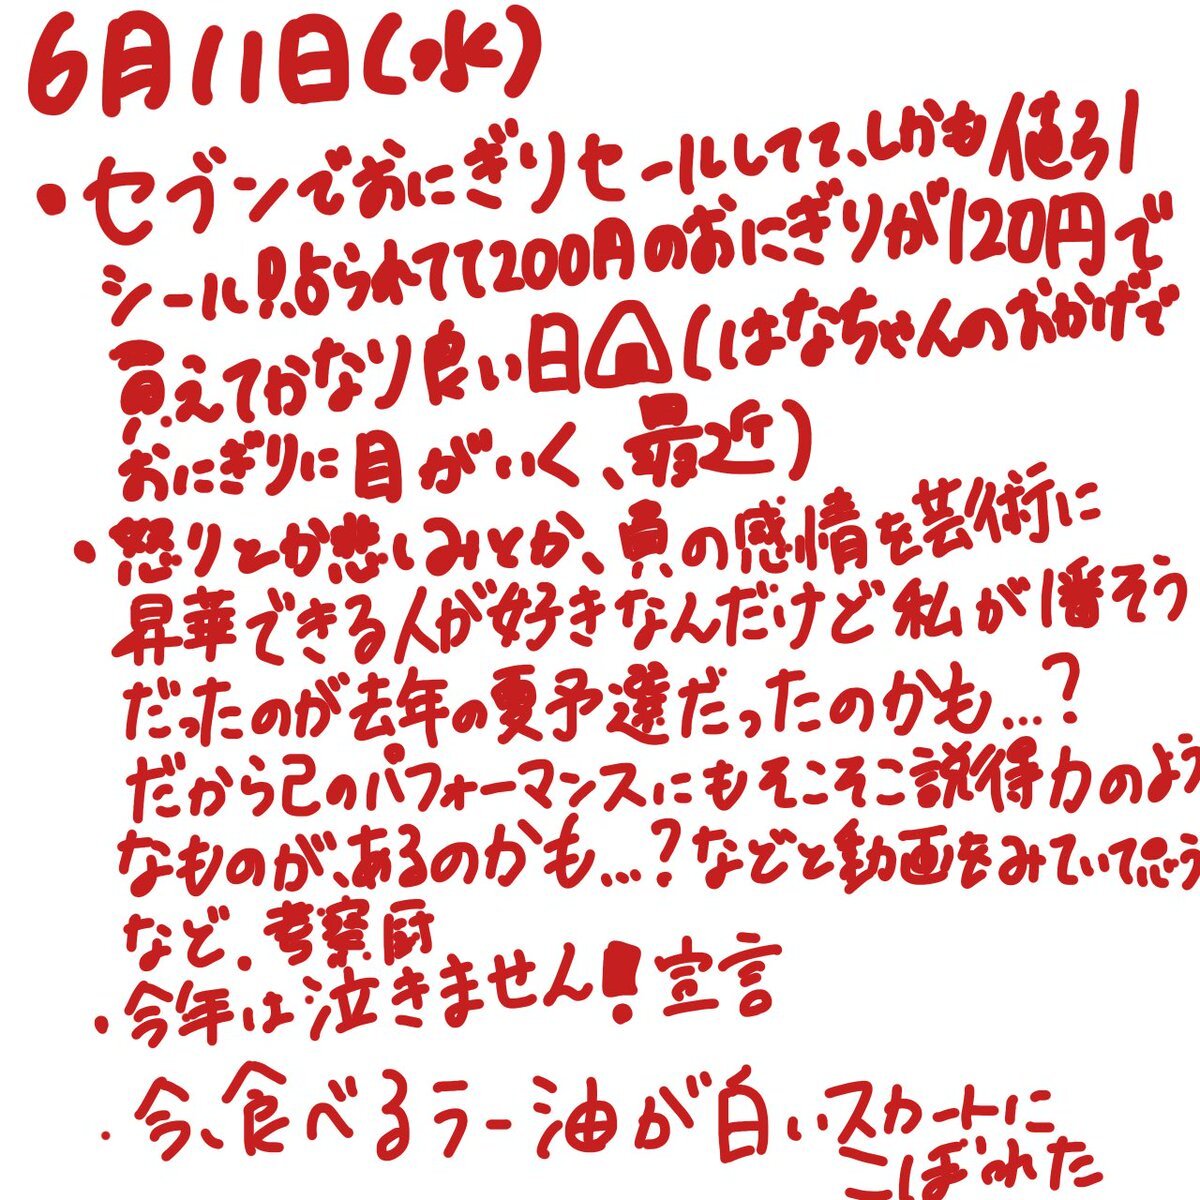 6月11日(水)
・セブンでおにぎりセールしてて、しかも値引
シール貼られてて200円のおにぎりが120円で
買えてかなり良い日🍙(はなちゃんのおかげで
おにぎりに目がいく、最近)
・怒りとか悲しみとか、負の感情を芸術に
昇華できる人が好きなんだけど私が1番そう
だったのが去年の夏予選だったのかも…?
だから己のパフォーマンスにもそこそこ説得力のよう
なものが、あるのかも…?などと動画をみていて思う
など、考察厨
・今年は泣きません!宣言
・今、食べるラー油が白いスカートに
こぼれた